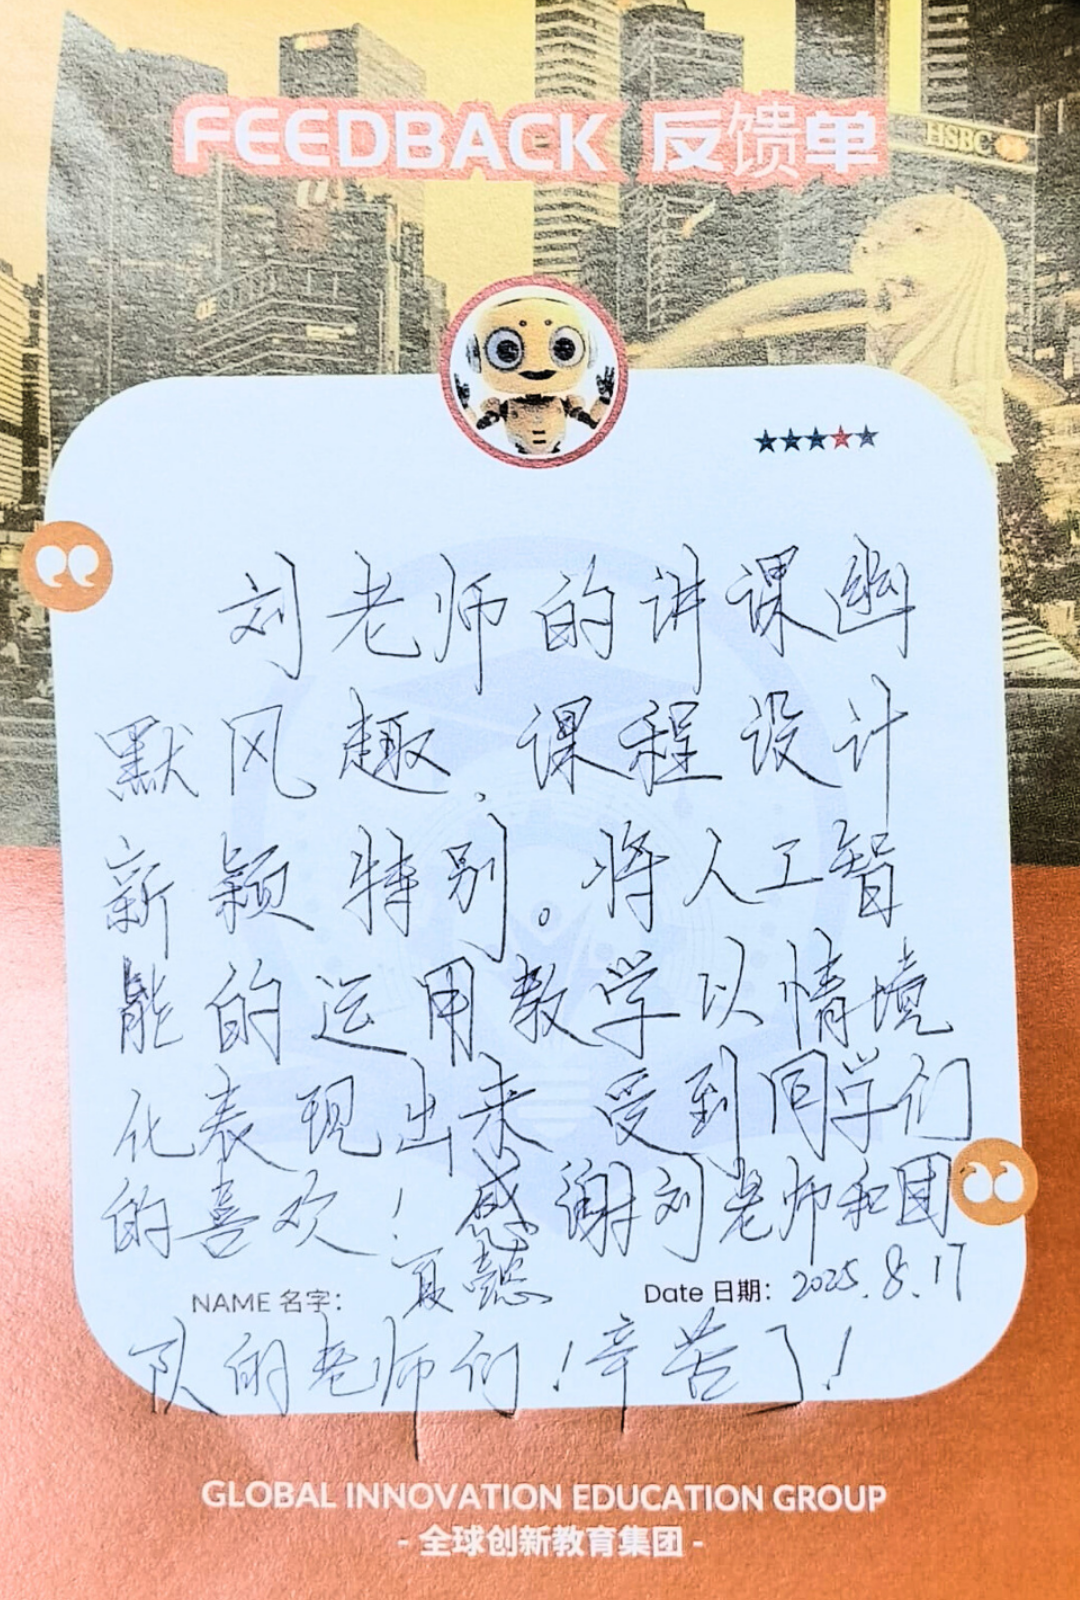 FEEDBACK 反馈单
HSBC
刘老师的讲课幽
默风趣，课程设计
新颖特别。将人工智
能的运用教学以情境
化表现出来 受到同学们
的喜欢！感谢刘老师和团
NAME 名字： 夏懿 Date 日期： 2025.8.17
队的老师们！辛苦了！
GLOBAL INNOVATION EDUCATION GROUP
- 全球创新教育集团 -